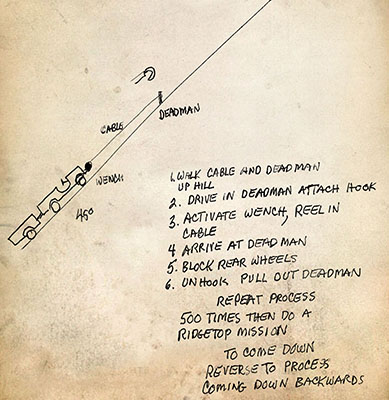 CABLE
DEADMAN
WENCH
45°
1. WALK CABLE AND DEADMAN
UP HILL
2. DRIVE IN DEADMAN ATTACH HOOK
3. ACTIVATE WENCH, REEL IN
CABLE
4 ARRIVE AT DEADMAN
5. BLOCK REAR WHEELS
6. UNHOOK PULL OUT DEADMAN
REPEAT PROCESS
500 TIMES THEN DO A
RIDGETOP MISSION
TO COME DOWN
REVERSE TO PROCESS
COMING DOWN BACKWARDS